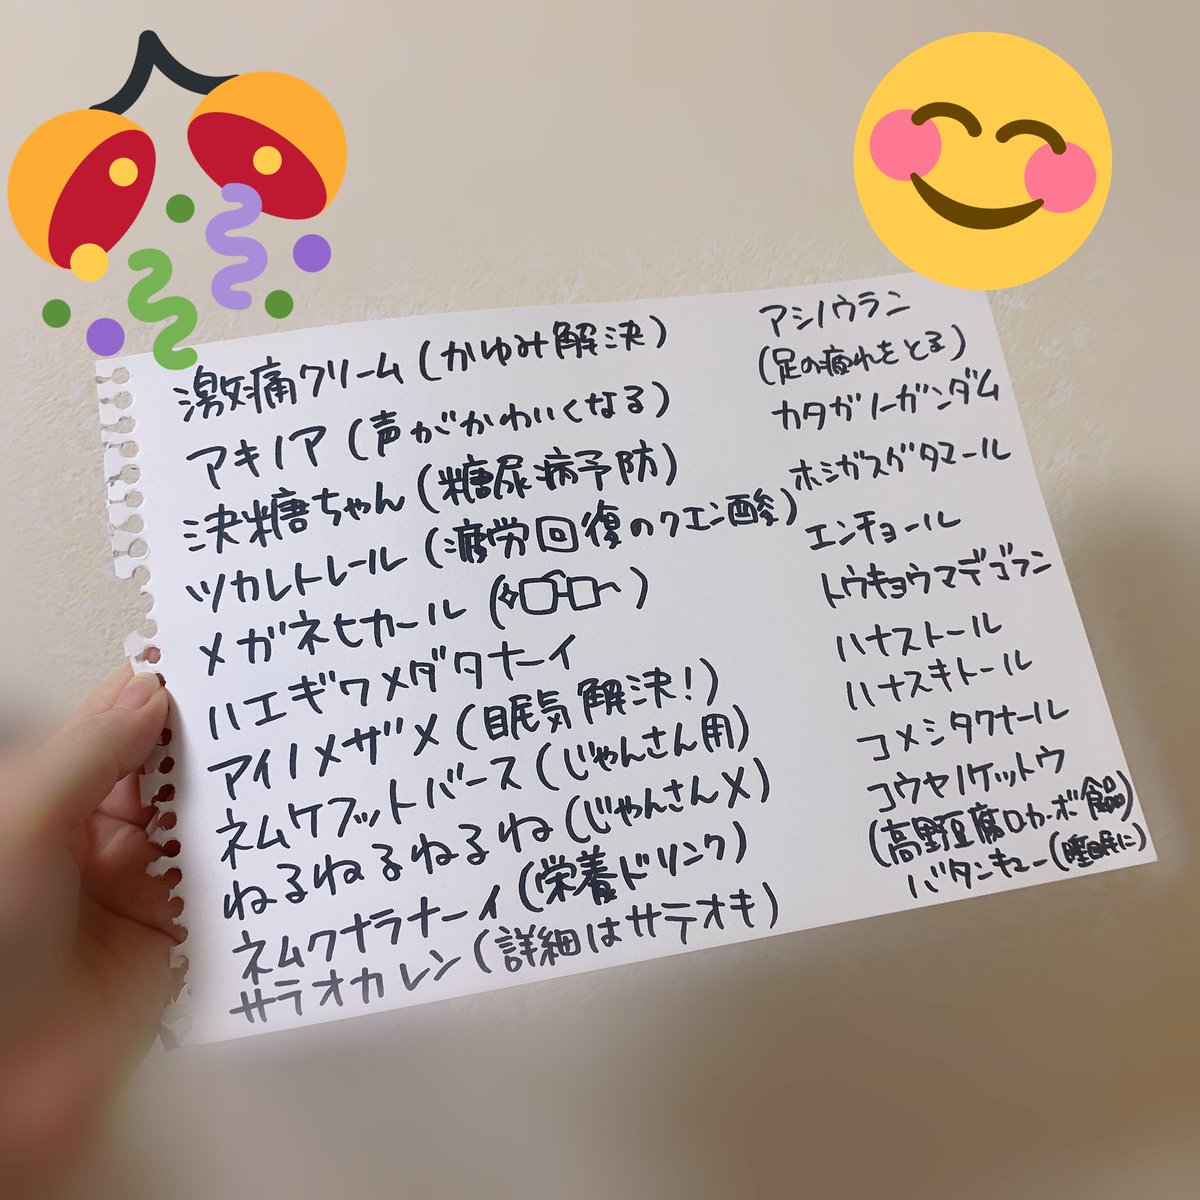 激痛クリーム(かゆみ解決)
アキノア(声がかわいくなる)
決糖ちゃん(糖尿病予防)
ツカレトレール(疲労回復のクエン酸)
メガネヒカール
ハエギワメダタナーイ
アイノメザメ(眠気解決!)
ネムケフットバース(じゃんさん用)
ねるねるねるね(じゃんさん✕)
ネムクナラナーイ(栄養ドリンク)
サラオカレン(詳細はサテオキ)
アシノウラン
(足の疲れをとる)
カタガノーガンダム
ホシガスグタマール
エンチョール
トウキョウマデゴラン
ハナストール
ハナスキトール
コメシタクナール
コウヤノケットウ
(高野豆腐ロカーボ食品)
バタンキュー(睡眠に)